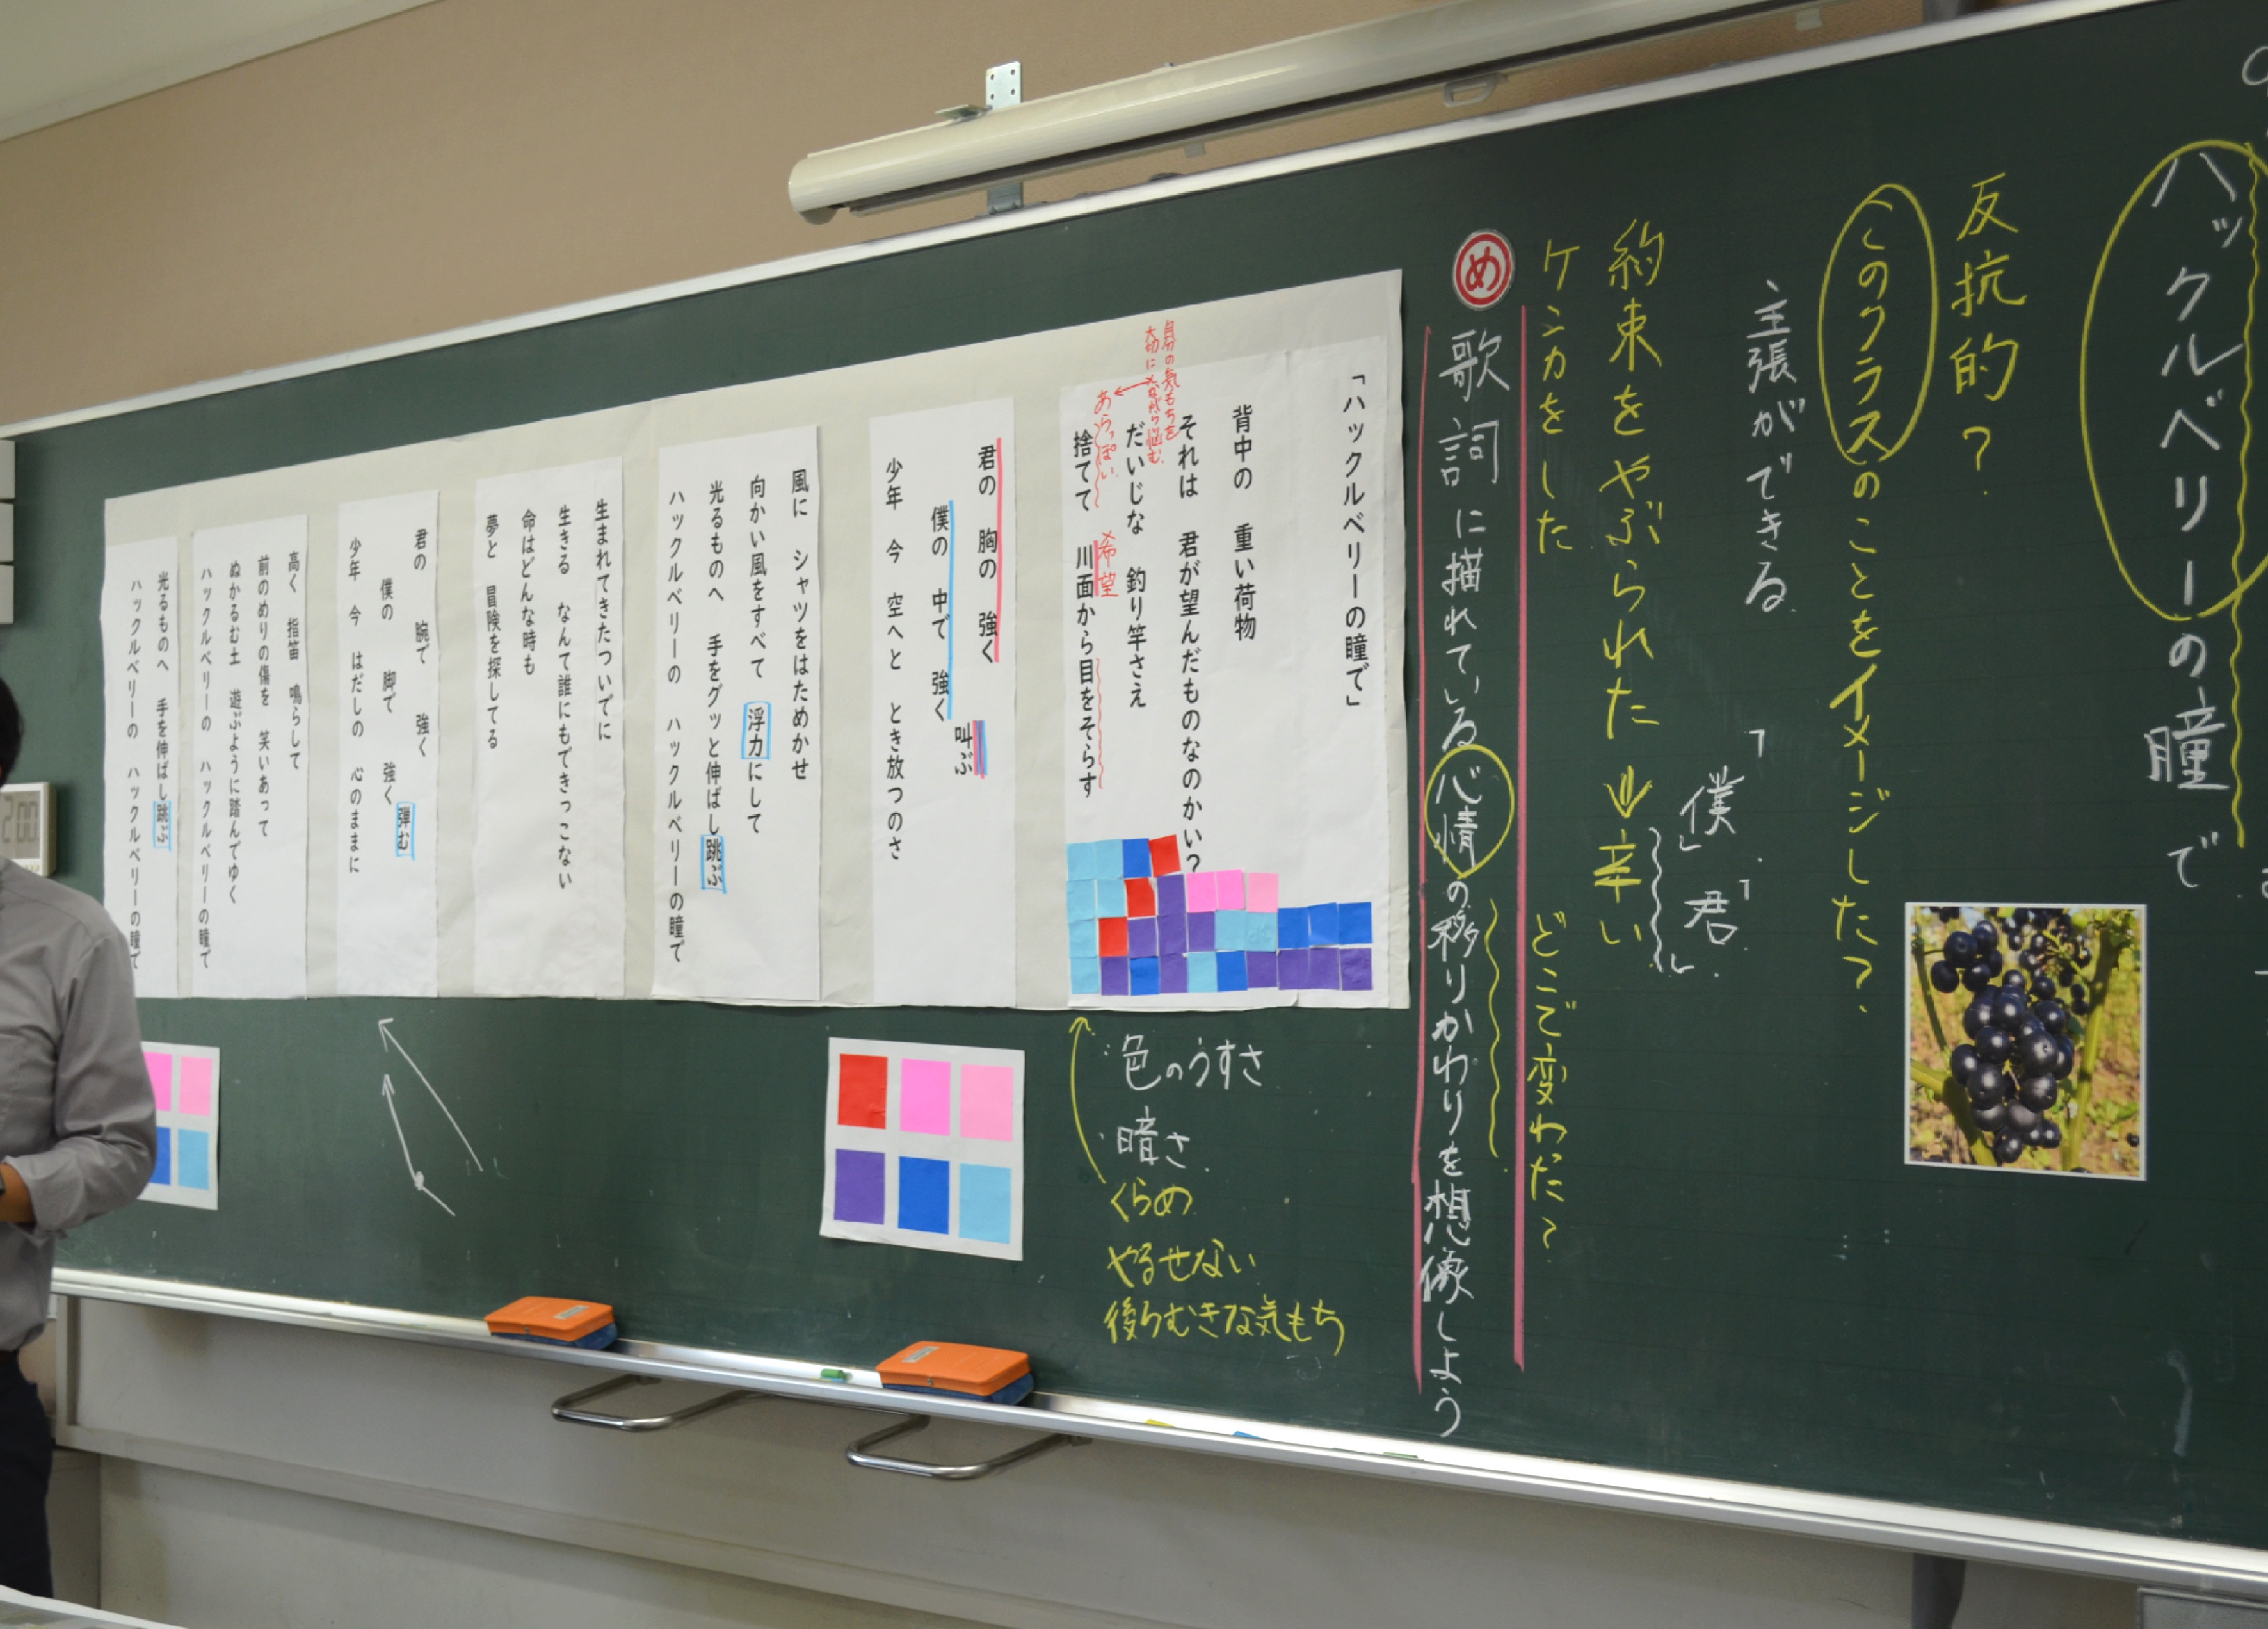 ハックルベリーの瞳で
反抗的?
このクラスのことをイメージした?
主張ができる
「僕」「君」
約束をやぶられた→辛い
ケンカをした
どこで変わった?
め
歌詞に描れている心情の移りかわりを想像しよう
「ハックルベリーの瞳で」
背中の 重い荷物
それは 君が望んだものなのかい?
だいじな 釣り竿さえ
捨てて 川面から目をそらす
自分の気もちを
大切にしながら悩む
あらっぽい
希望
君の 胸の 強く
僕の 中で 強く
叫ぶ
少年 今 空へと とき放つのさ
風に シャツをはためかせ
向かい風をすべて 浮力にして
光るものへ 手をグッと伸ばし跳ぶ
ハックルベリーの ハックルベリーの瞳で
生まれてきたついでに
生きる なんて誰にもできっこない
命はどんな時も
夢と 冒険を探してる
君の 腕で 強く
弾む
僕の 脚で 強く
少年 今 はだしの 心のままに
高く 指笛 鳴らして
前のめりの傷を 笑いあって
ぬかるむ土 遊ぶように踏んでゆく
ハックルベリーの ハックルベリーの瞳で
光るものへ 手を伸ばし跳ぶ
ハックルベリーの ハックルベリーの瞳で
色のうすさ
暗さ
くらめ
やるせない
後ろむきな気もち